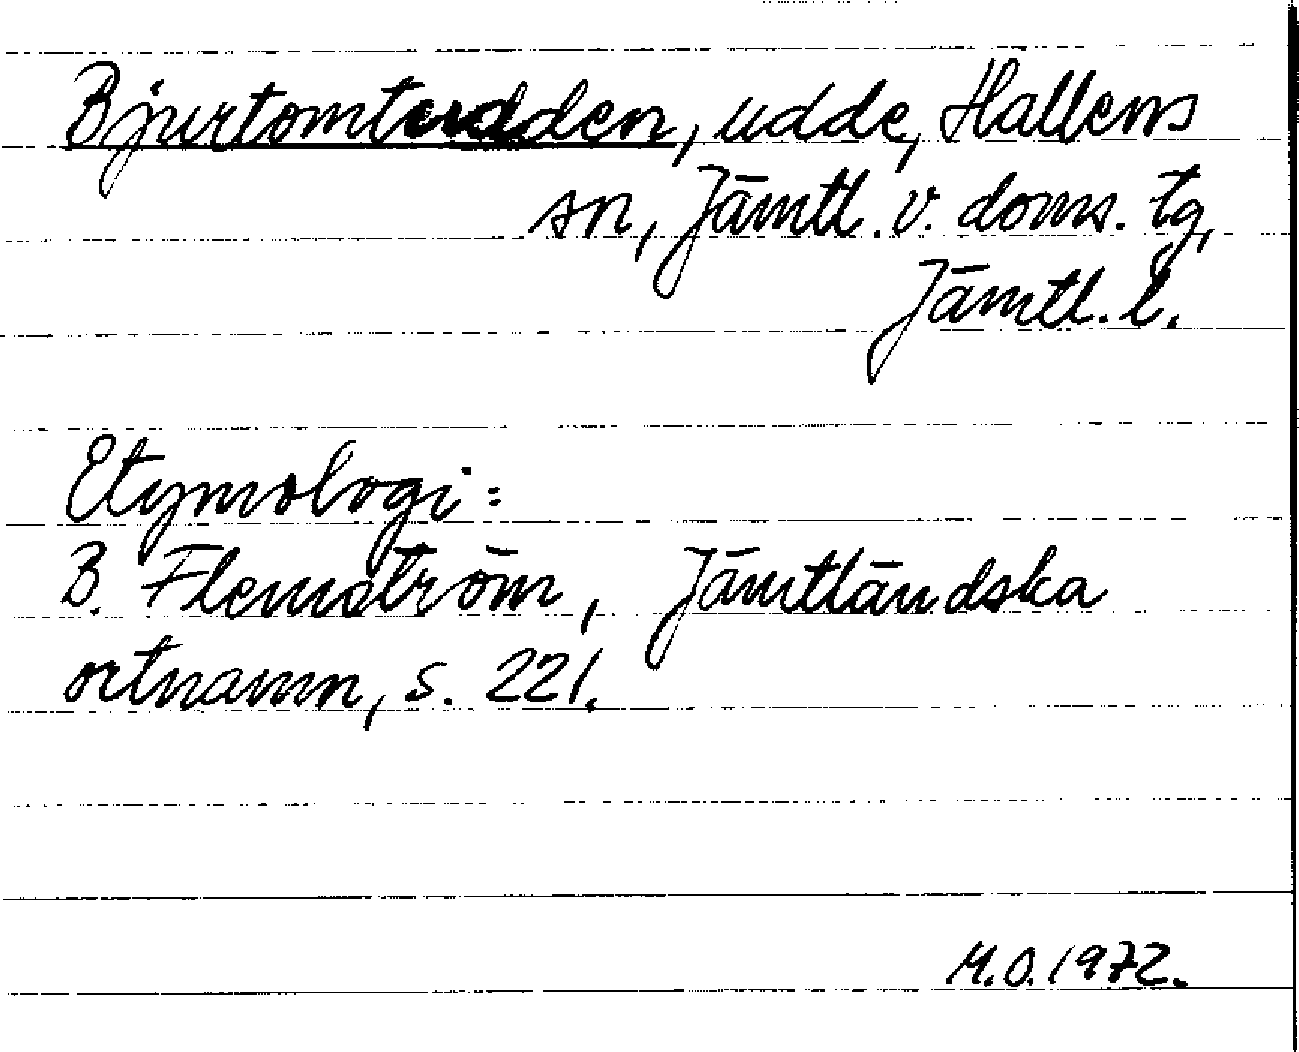 Bjurtomtudden, udde, Hallens
sn, Jämtl. v. doms. tg,
Jämtl. l.
Etymologi:
B. Flemström, Jämtländska
ortnamn, s. 221.
M.O. 1972.